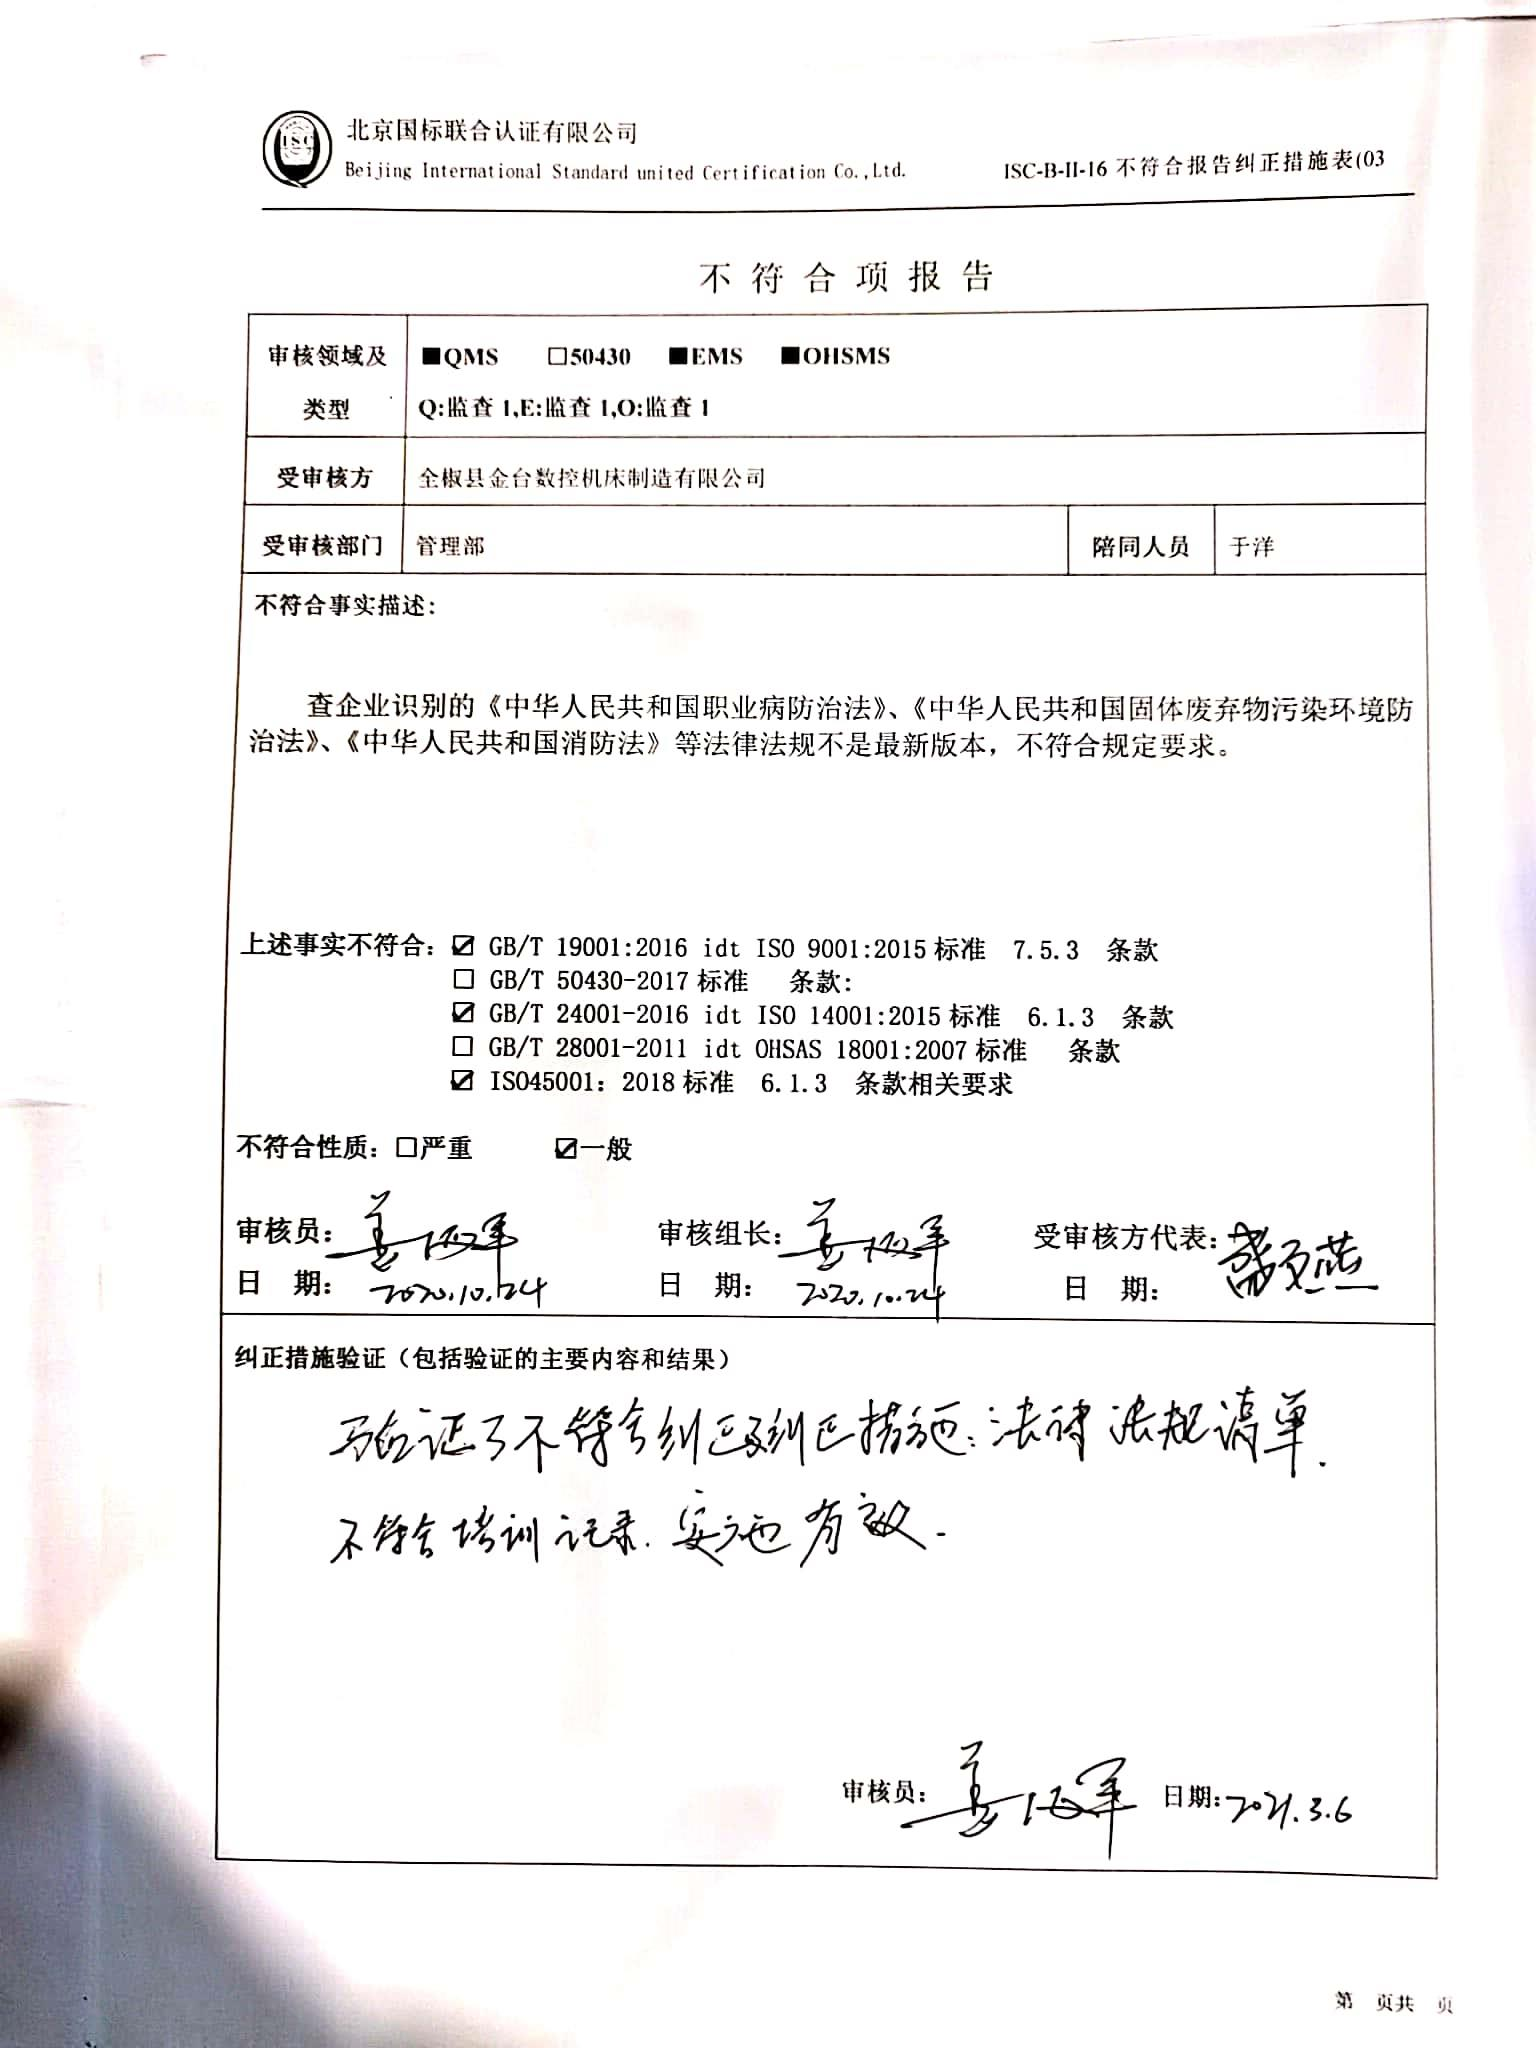 ISC
北京国标联合认证有限公司
Beijing International Standard united Certification Co.,Ltd.
ISC-B-II-16 不符合报告纠正措施表(03
不符合项报告
审核领域及类型
■QMS □50430 ■EMS ■OHSMS
Q:监查 1,E:监查 1,O:监查 1
受审核方 全椒县金台数控机床制造有限公司
受审核部门 管理部 陪同人员 于洋
不符合事实描述:
查企业识别的《中华人民共和国职业病防治法》、《中华人民共和国固体废弃物污染环境防
治法》、《中华人民共和国消防法》等法律法规不是最新版本，不符合规定要求。
上述事实不符合: ☑ GB/T 19001:2016 idt ISO 9001:2015标准 7.5.3 条款
□ GB/T 50430-2017标准 条款:
☑ GB/T 24001-2016 idt ISO 14001:2015标准 6.1.3 条款
□ GB/T 28001-2011 idt OHSAS 18001:2007标准 条款
☑ ISO45001: 2018标准 6.1.3 条款相关要求
不符合性质: □严重 ☑一般
审核员: 审核组长: 受审核方代表:
日 期: 2020.10.24 日 期: 2020.10.24 日 期:
纠正措施验证（包括验证的主要内容和结果）
验证了不符合纠正及纠正措施: 法律法规清单.
不符合培训记录. 实施有效.
审核员: 日期: 2021.3.6
第 页共 页